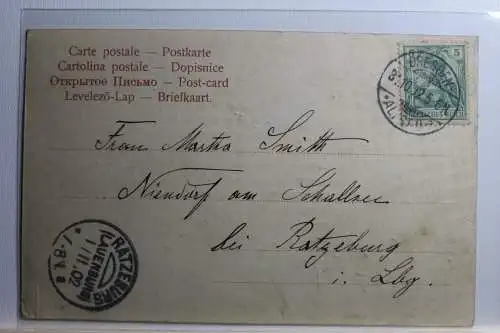 Carte postale — Postkarte
Cartolina postale — Dopisnice
Открытое Письмо — Post-card
Levelező-Lap — Briefkaart.
5
Frau Martha Smith
Niendorf am Schallsee
bei Ratzeburg
i. Lbg.
RATZEBURG
(LAUENBURG)
1/11.02
7-8V.